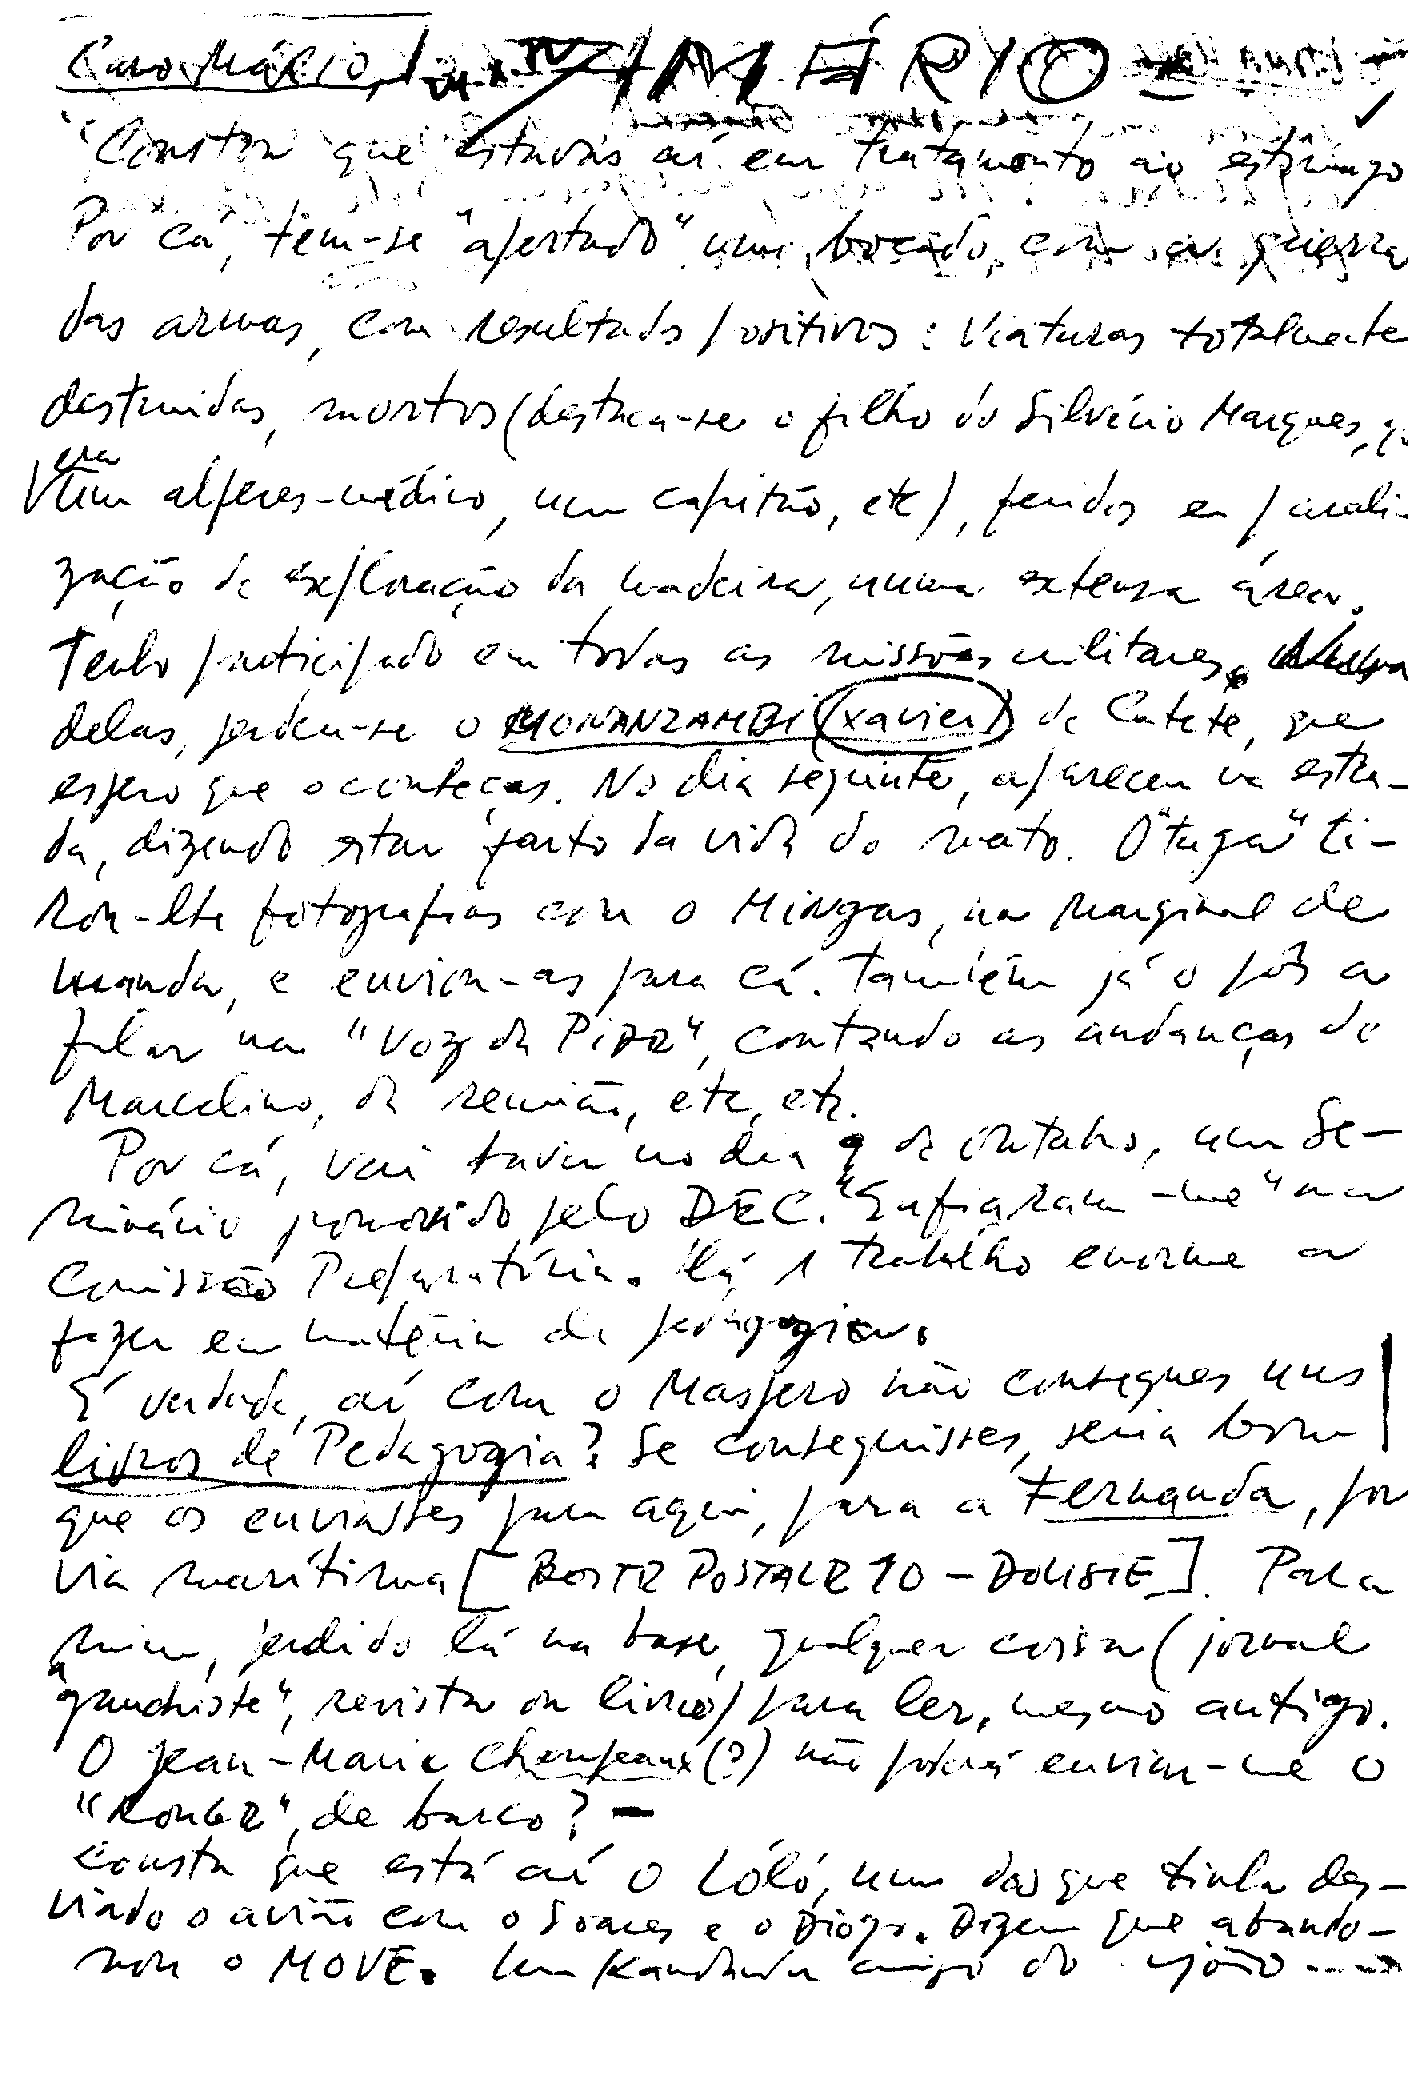 Caro Mário, MÁRIO
Consta que estavas aí em tratamento ao estômago
Por cá, tem-se "apertado" um bocado, com a guerra
das armas, com resultados positivos: Viaturas totalmente
destruidas, mortos (destaca-se o filho do Silvério Marques, q.
era um alferes-médico, um capitão, etc), feridos e parali-
zação de exploração da madeira, numa extensa área.
Tenho participado em todas as missões militares. Numa
delas, perdeu-se o MONANZAMBI (Xavier) de Catete, que
espero que o conheças. No dia seguinte, apareceu na estra-
da, dizendo estar farto da vida do mato. O "tuga" ti-
rou-lhe fotografias com o Mingas, na Marginal de
Luanda, e enviou-as para cá. Também já o pôs a
falar na "Voz da PIDE", contando as andanças do
Marcelino, da reunião, etc, etc.
Por cá, vai haver no dia 9 de outubro, um Se-
minário promovido pelo DEC. "Enfiaram-me" na
Comissão Preparatória. Há 1 trabalho enorme a
fazer em matéria de pedagogia.
É verdade, aí com o Maspero não consegues uns
livros de Pedagogia? Se conseguisses, seria bom
que os enviasses para aqui, para a Fernanda, por
via marítima [BOITE POSTALE 10 - DOLISIE]. Para
mim, perdido lá na base, qualquer coisa (jornal
"gauchiste", revista ou livro) para ler, mesmo antigo.
O Jean-Marie (?) não poderá enviar-me o
"ROUGE", de barco? -
Consta que está aí o Lóló, um dos que tinha des-
viado o avião com o Soares e o Diogo. Dizem que abando-
nou o MOVE. Um Kandandu amigo do João ....